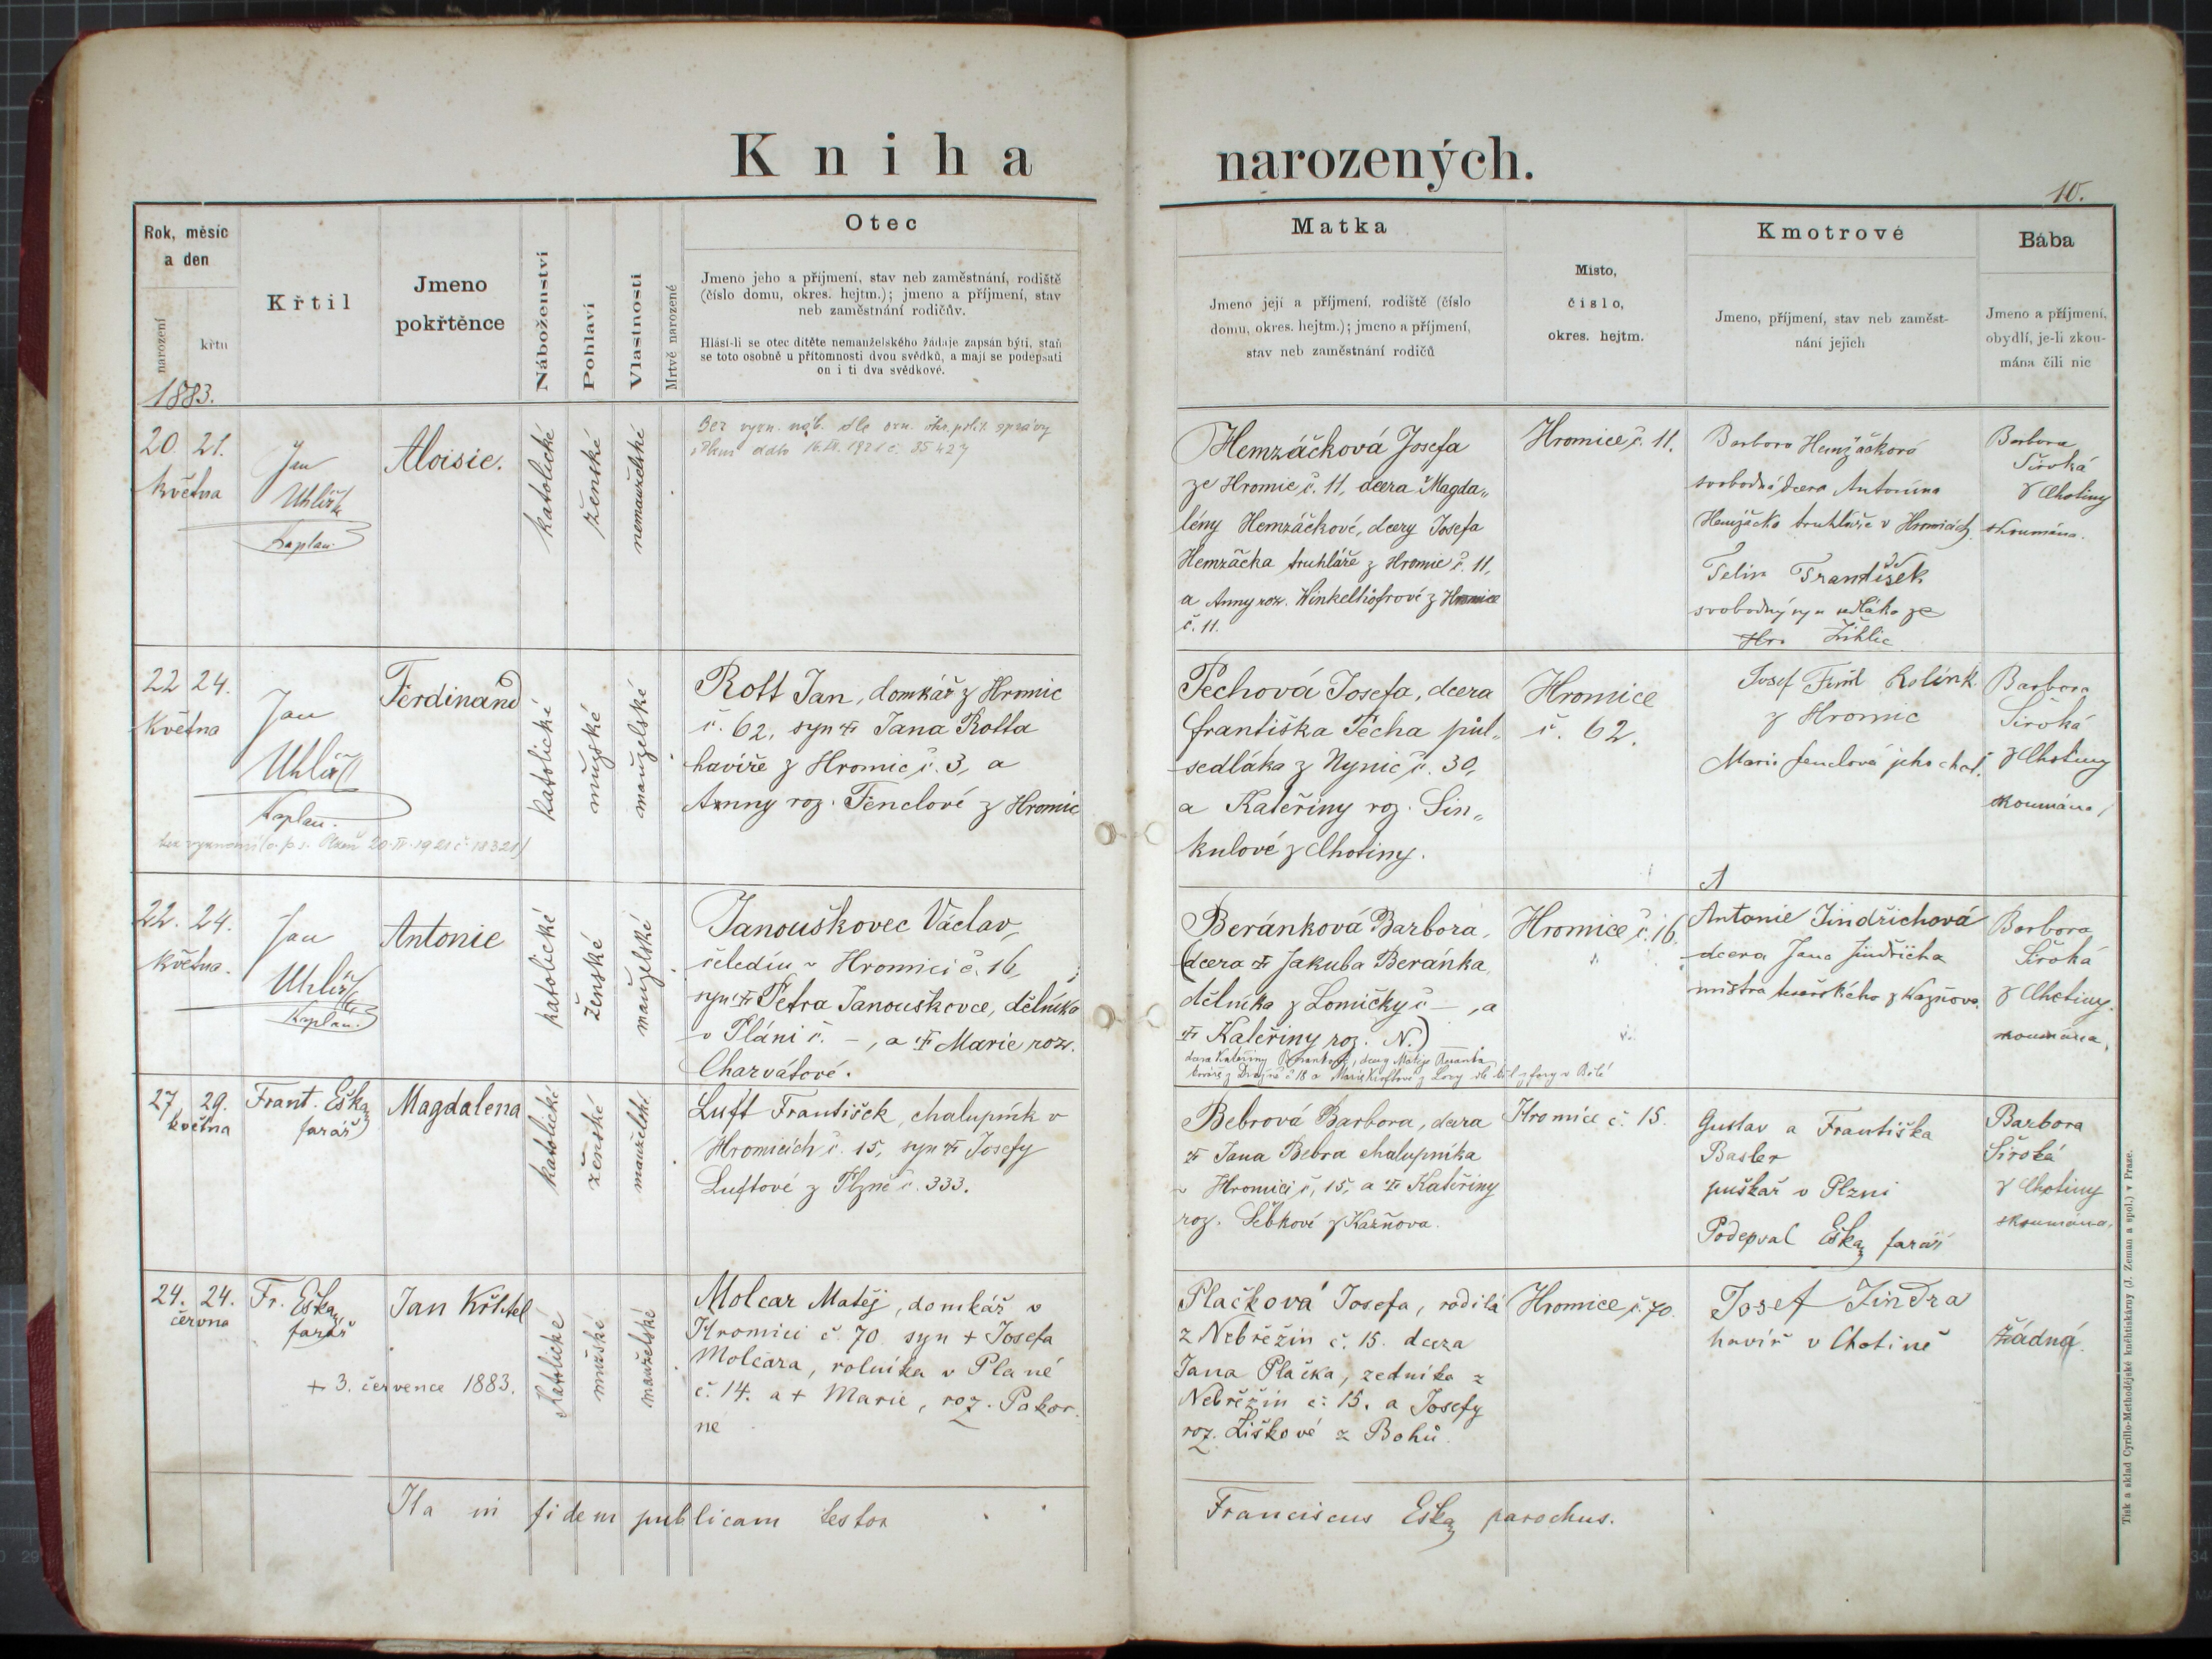 Kniha narozených.
10.
Rok, měsíc
a den
narození
křtu
1883.
Křtil
Jmeno
pokřtěnce
Náboženství
Pohlaví
Vlastnosti
Mrtvě narozené
Otec
Jmeno jeho a příjmení, stav neb zaměstnání, rodiště
(číslo domu, okres. hejtm.); jmeno a příjmení, stav
neb zaměstnání rodičův.
Hlásí-li se otec dítěte nemanželského žádaje zapsán býti, staň
se toto osobně u přítomnosti dvou svědků, a mají se podepsati
on i ti dva svědkové.
Matka
Jmeno její a příjmení, rodiště (číslo
domu, okres. hejtm.); jmeno a příjmení,
stav neb zaměstnání rodičů
Místo,
číslo,
okres. hejtm.
Kmotrové
Jmeno, příjmení, stav neb zaměst-
nání jejich
Bába
Jmeno a příjmení,
obydlí, je-li zkou-
mána čili nic
20. 21.
května
Jan
Uhlíř
Kaplan
Aloisie.
katolické
ženské
nemanželské
Bez vyzn. náb. dle ozn. okr. polit. správy
Hemzáčková Josefa
ze Hromic č. 11, dcera Magda„
lény Hemzáčkové, dcery Josefa
Hemzáčka truhláře z Hromic č. 11,
a Anny roz. Winkelhöfrové z Hromice
č. 11.
Hromice č. 11.
Barbora Hemzáčková
svobodná dcera Antonína
Hemzáčka truhláře v Hromicích
František
svobodný syn sedláka ze
Hro Žihlic
Barbora
Široká
z Chotiny
skoumána.
22 24.
Května
Jan
Uhlíř
Kaplan.
Ferdinand
katolické
mužské
manželské
Rott Jan, domkář z Hromic
č. 62, syn + Jana Rotta
havíře z Hromic č. 3, a
Anny roz. Fenclové z Hromic
Pechová Josefa, dcera
Františka Pecha půl„
sedláka z Nynic č. 30,
a Kateřiny roz. Sin„
kulové z Chotiny.
Hromice
č. 62.
Josef
z Hromic
Marie Fenclová jeho chot.
Barbora
Široká
z Chotiny
skoumána
22. 24.
května.
Jan
Uhlíř
Kaplan.
Antonie
katolické
ženské
manželské
Janouškovec Václav,
čeledín v Hromici č. 16,
syn + Petra Janouškovce, dělníka
v Pláni č. –, a + Marie roz.
Charvátové.
Beránková Barbora,
(dcera + Jakuba Beránka,
dělníka z Lomičky č –, a
+ Kateřiny roz. N.)
Hromice č. 16.
Antonie Jindřichová
dcera Jana Jindřicha
mistra z Kazňova.
Barbora
Široká
z Chotiny.
skoumána.
27. 29.
května
Frant. Eška
farář
Magdalena
katolické
ženské
manželské
Luft František, chalupník v
Hromicích č. 15, syn + Josefy
Luftové z Plzně č. 333.
Bebrová Barbora, dcera
+ Jana Bebra chalupníka
v Hromici č. 15, a + Kateřiny
roz. Sebkové z Kazňova.
Hromice č. 15.
Gustav a Františka
Basler
puškař v Plzni
Podepsal Eška farář
Barbora
Široká
z Chotiny
skoumána.
24. 24.
června
Fr. Eška
farář
Jan Křtitel
+ 3. července 1883.
katolické
mužské
manželské
Molcar Matěj, domkář v
Hromici č. 70 syn + Josefa
Molcara, rolníka v Plané
č. 14. a + Marie, roz. Pokor-
né
Plačková Josefa, rodilá
z Nebřežin č. 15. dcera
Jana Plačka, zedníka z
Nebřežin č. 15. a Josefy
roz. Liškové z Bohů.
Hromice č. 70.
Josef Jindra
havíř v Chotině
žádná.
Ita in fidem publicam testor
Franciscus Eška parochus.
Tisk a sklad Cyrillo-Methodějské knihtiskárny (J. Zeman a spol.) v Praze.